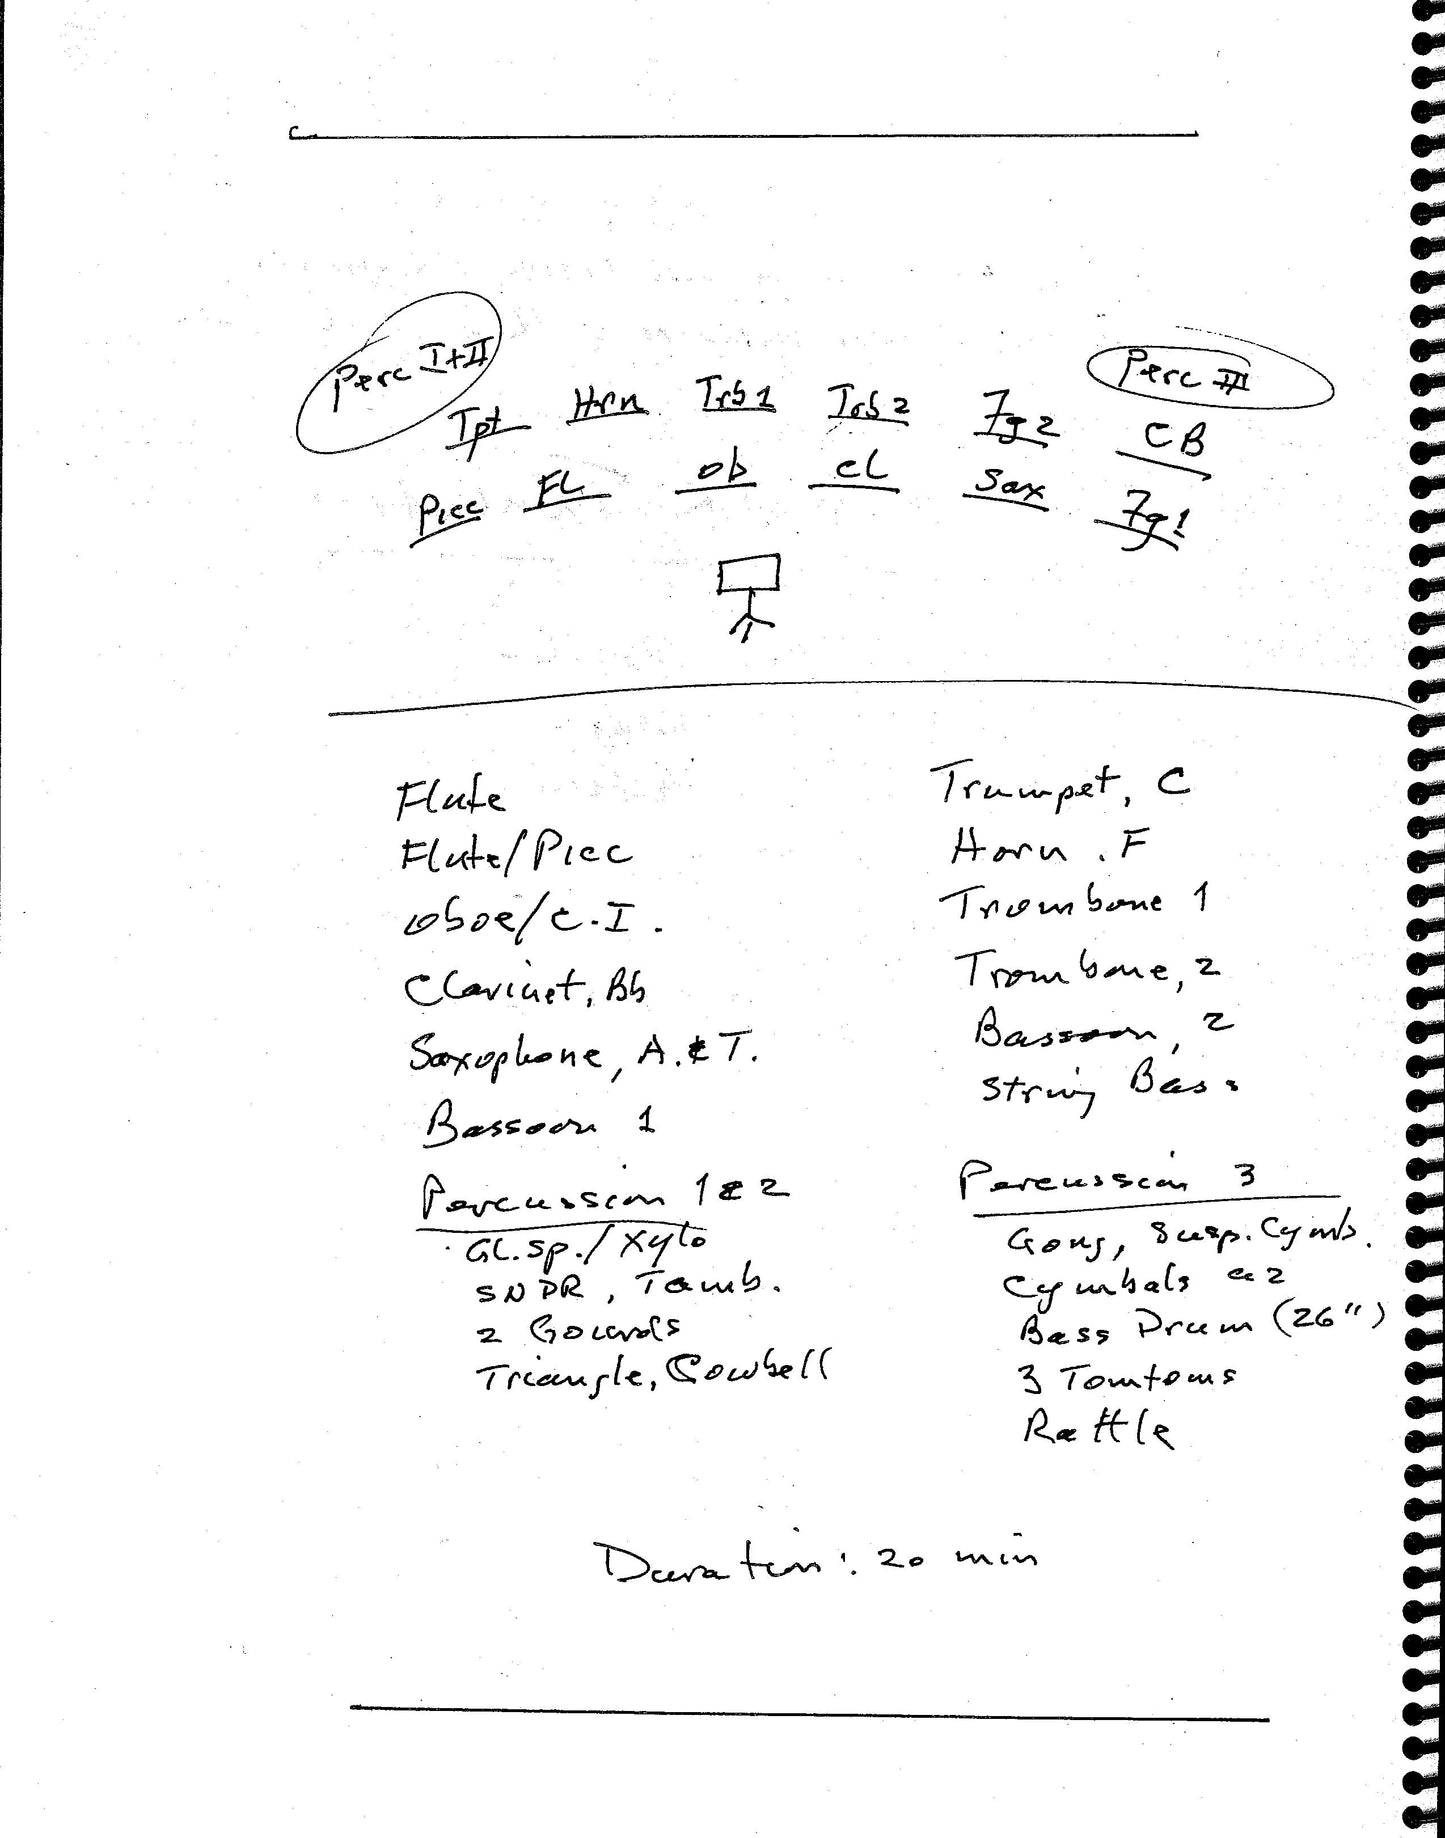 Perc I+II
Perc III
Tpt Hrn Trb 1 Trb 2 Fg 2 CB
Picc FL ob cl Sax Fg 1
Flute
Flute/Picc
oboe/E.I.
Clarinet, Bb
Saxophone, A. & T.
Bassoon 1
Percussion 1 & 2
GL.sp./Xylo
SNDR, Tamb.
2 Gourds
Triangle, Cowbell
Trumpet, C
Horn. F
Trombone 1
Trombone, 2
Bassoon, 2
String Bass
Percussion 3
Gong, Susp. Cymb.
Cymbals a2
Bass Drum (26")
3 Tomtoms
Rattle
Duration: 20 min